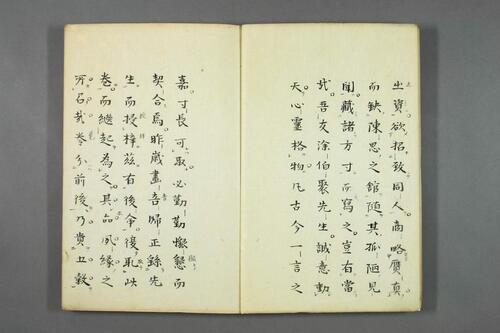 出資欲招致同人商略贋真
而缺陳思之舘随其孤陋見
聞藏諸方寸而寫之豈有當
哉吾友涂伯聚先生誠意動
天心靈格物凡古今一言之
嘉寸長可取必勤勤懇而
契合焉昨歳畫吾帰正餘先
生而授梓茲有後命復耻此
巻而繼起為之其品夙縁之
所召哉巻分前後乃貴五穀